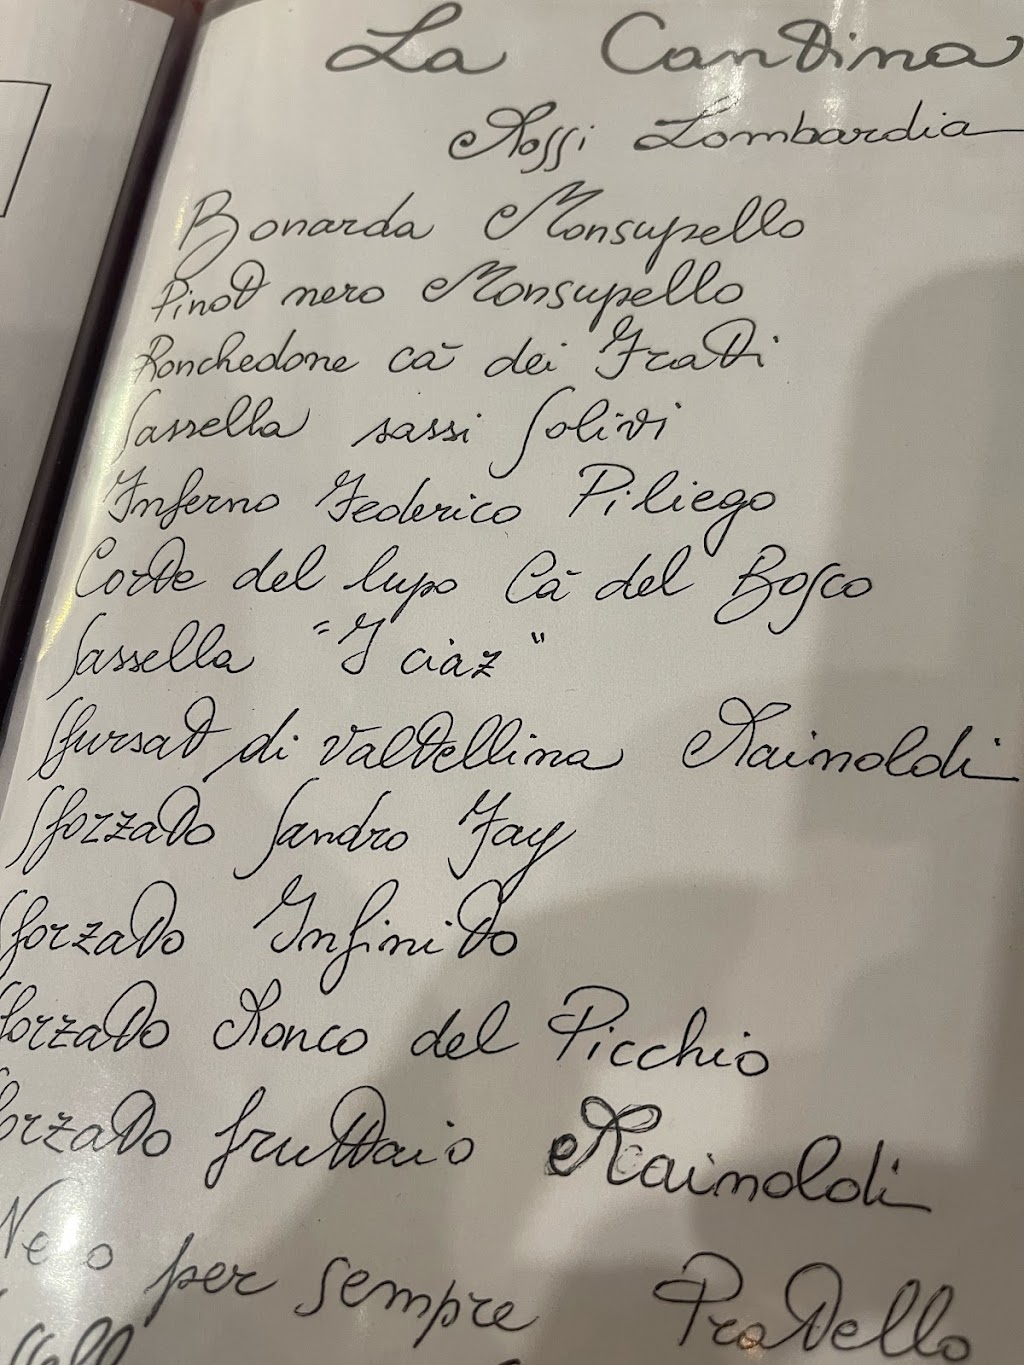 La Cantina
Rossi Lombardia
Bonarda Monsupello
Pinot nero Monsupello
Ronchedone cà dei Frati
Sassella sassi Solivi
Inferno Federico Piliego
Corte del lupo Cà del Bosco
Sassella "I ciaz"
Sfursat di Valtellina Rainoldi
Sforzato Sandro Fay
Sforzato Infinito
Sforzato Ronco del Picchio
Sforzato fruttaio Rainoldi
Nero per sempre Pratello